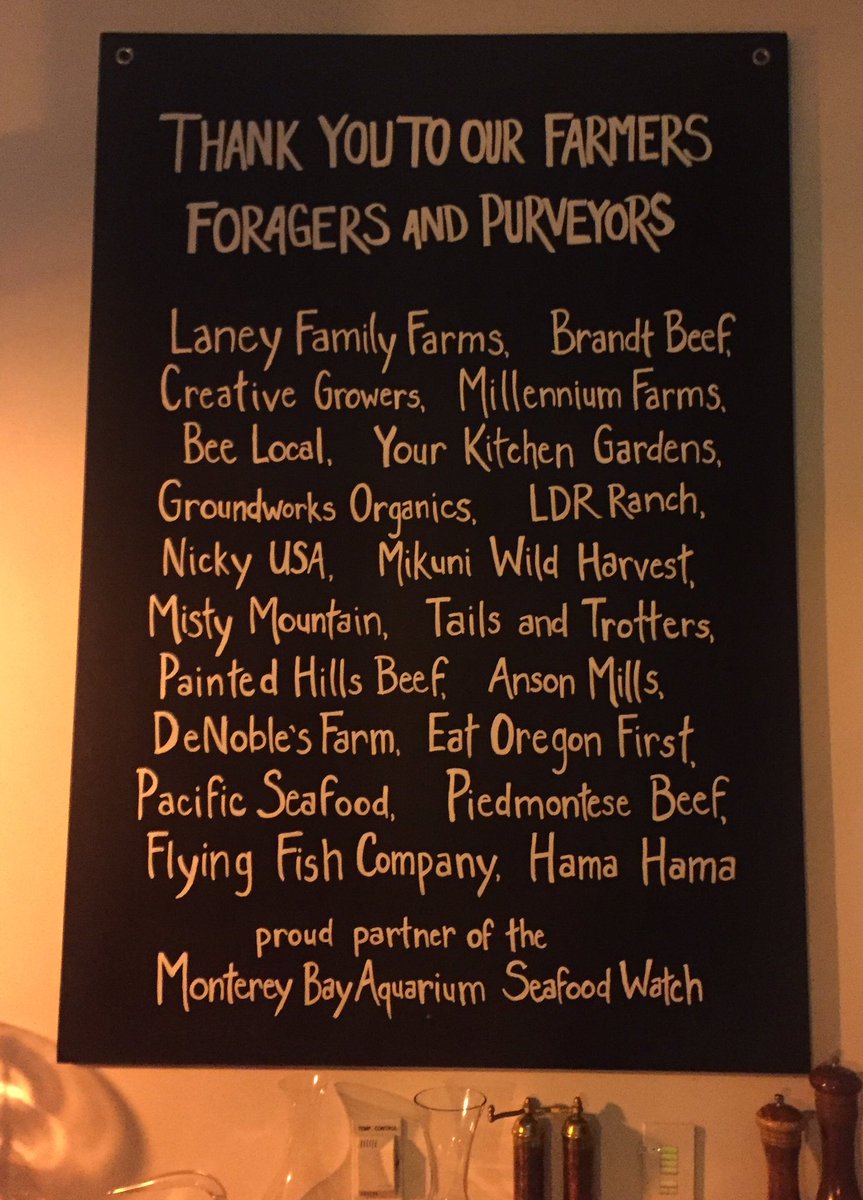 THANK YOU TO OUR FARMERS
FORAGERS AND PURVEYORS
Laney Family Farms, Brandt Beef,
Creative Growers, Millennium Farms,
Bee Local, Your Kitchen Gardens,
Groundworks Organics, LDR Ranch,
Nicky USA, Mikuni Wild Harvest,
Misty Mountain, Tails and Trotters,
Painted Hills Beef, Anson Mills,
DeNoble's Farm, Eat Oregon First,
Pacific Seafood, Piedmontese Beef,
Flying Fish Company, Hama Hama
proud partner of the
Monterey Bay Aquarium Seafood Watch
TEMP. CONTROL